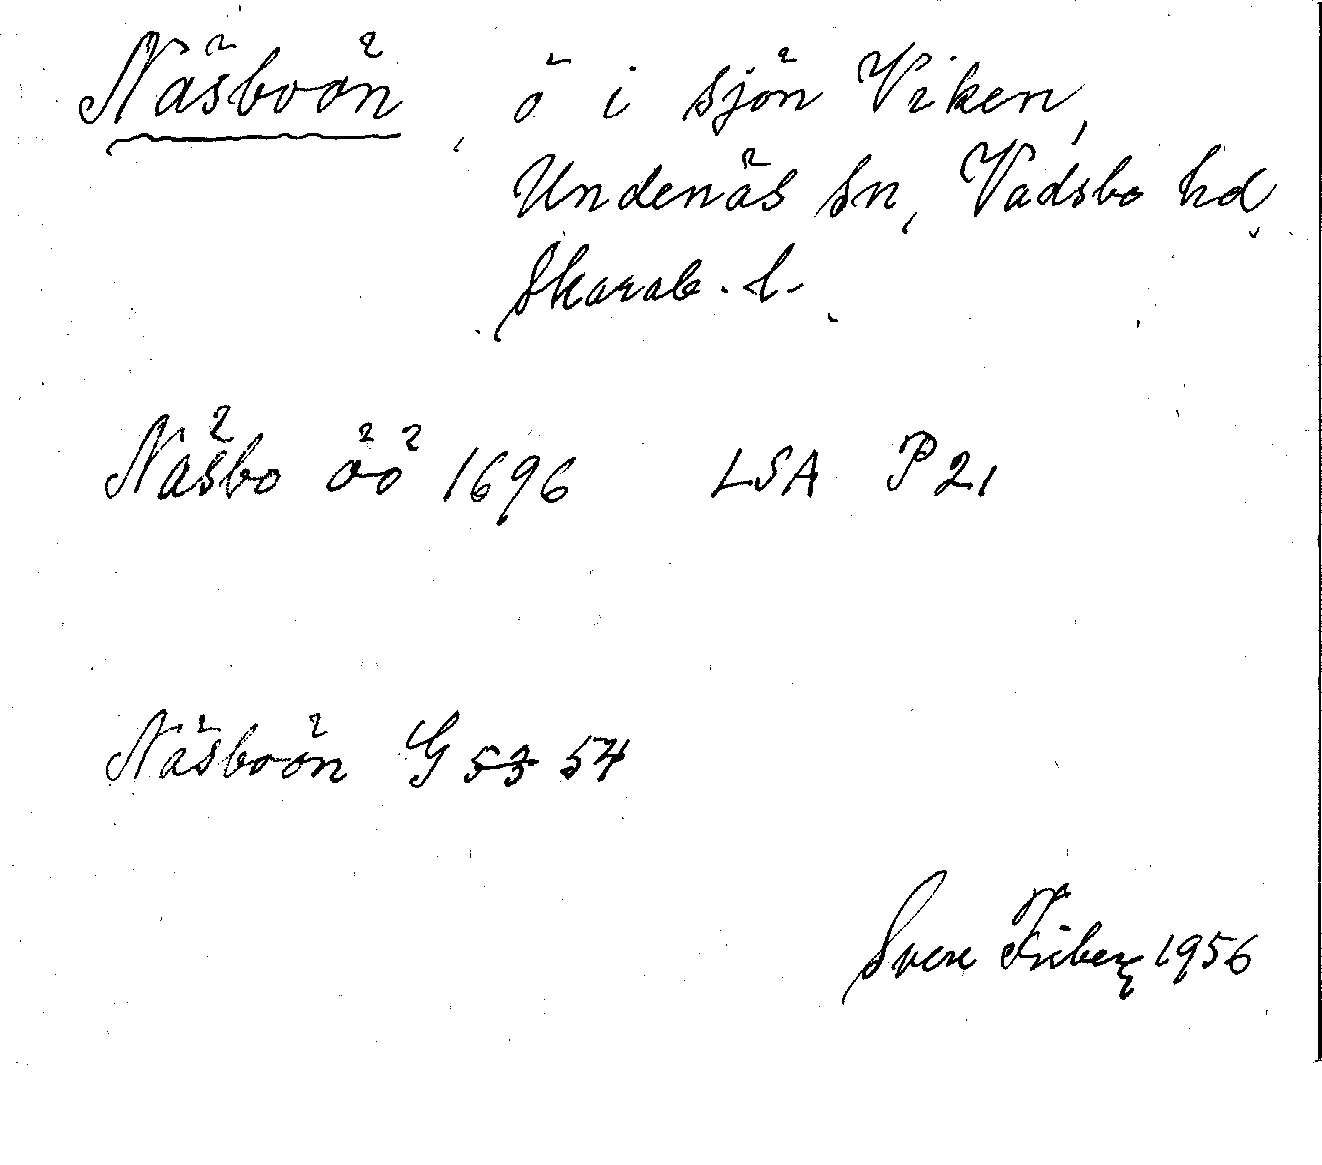 Näsboön, ö i sjön Viken,
Undenäs sn, Vadsbo hd,
Skarab. l.
Näsbo öö 1696 LSA P 21
Näsboön G 53 54
Sven Friberg 1956